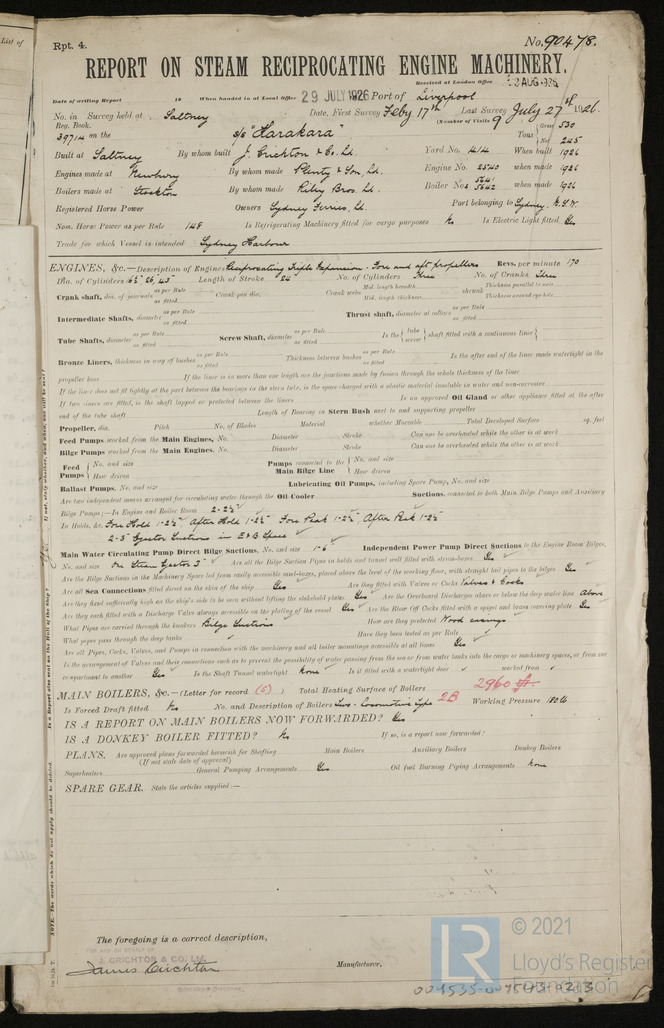 List of
Rpt. 4.
No. 90478.
REPORT ON STEAM RECIPROCATING ENGINE MACHINERY.
Received at London Office 3 AUG 1926
Date of writing Report 19 When handed in at Local Office 29 JULY 1926 Port of Liverpool
No. in Reg. Book. Survey held at Saltney Date, First Survey Feby 17th Last Survey July 27th 1926.
(Number of Visits 9
39714 on the s/s "Karakara" Tons { Gross 530 Net 245
Built at Saltney By whom built J. Crichton & Co. Ld. Yard No. 414 When built 1926
Engines made at Newbury By whom made Plenty & Son, Ld. Engine No. 2540 when made 1926
Boilers made at Stockton By whom made Riley Bros. Ld. Boiler Nos. 5641 5642 when made 1926
Registered Horse Power Owners Sydney Ferries, Ld. Port belonging to Sydney, N.S.W.
Nom. Horse Power as per Rule 148 Is Refrigerating Machinery fitted for cargo purposes No Is Electric Light fitted Yes
Trade for which Vessel is intended Sydney Harbour
ENGINES, &c.—Description of Engines Reciprocating Triple Expansion. Fore and aft propellers Revs. per minute 170
Dia. of Cylinders 16½, 26, 43" Length of Stroke 24 No. of Cylinders Three No. of Cranks Three
Crank shaft, dia. of journals as per Rule as fitted Crank pin dia. Crank webs Mid. length breadth Mid. length thickness shrunk Thickness parallel to axis Thickness around eye-hole
Intermediate Shafts, diameter as per Rule as fitted Thrust shaft, diameter at collars as per Rule as fitted
Tube Shafts, diameter as per Rule as fitted Screw Shaft, diameter as per Rule as fitted Is the { tube screw } shaft fitted with a continuous liner {
Bronze Liners, thickness in way of bushes as per Rule as fitted Thickness between bushes as per Rule as fitted Is the after end of the liner made watertight in the
propeller boss If the liner is in more than one length are the junctions made by fusion through the whole thickness of the liner
If the liner does not fit tightly at the part between the bearings in the stern tube, is the space charged with a plastic material insoluble in water and non-corrosive
If two liners are fitted, is the shaft lapped or protected between the liners Is an approved Oil Gland or other appliance fitted at the after
end of the tube shaft Length of Bearing in Stern Bush next to and supporting propeller
Propeller, dia. Pitch No. of Blades Material whether Moveable Total Developed Surface sq. feet
Feed Pumps worked from the Main Engines, No. Diameter Stroke Can one be overhauled while the other is at work
Bilge Pumps worked from the Main Engines, No. Diameter Stroke Can one be overhauled while the other is at work
Feed Pumps { No. and size How driven Pumps connected to the Main Bilge Line { No. and size How driven
Ballast Pumps, No. and size Lubricating Oil Pumps, including Spare Pump, No. and size
Are two independent means arranged for circulating water through the Oil Cooler Suctions, connected to both Main Bilge Pumps and Auxiliary
Bilge Pumps;—In Engine and Boiler Room 2-2½"
In Holds, &c. Fore Hold 1-2½" After Hold 1-2½" Fore Peak 1-2½", After Peak 1-2½
2-3" Ejector Suctions in E & B Space
Main Water Circulating Pump Direct Bilge Suctions, No. and size 1-6" Independent Power Pump Direct Suctions to the Engine Room Bilges,
No. and size One Steam Ejector 3" Are all the Bilge Suction Pipes in holds and tunnel well fitted with strum-boxes Yes
Are the Bilge Suctions in the Machinery Space led from easily accessible mud-boxes, placed above the level of the working floor, with straight tail pipes to the bilges Yes
Are all Sea Connections fitted direct on the skin of the ship Yes Are they fitted with Valves or Cocks Valves & Cocks
Are they fixed sufficiently high on the ship's side to be seen without lifting the stokehold plates Yes Are the Overboard Discharges above or below the deep water line Above
Are they each fitted with a Discharge Valve always accessible on the plating of the vessel Yes Are the Blow Off Cocks fitted with a spigot and brass covering plate Yes
What Pipes are carried through the bunkers Bilge Suctions How are they protected Wood casings
What pipes pass through the deep tanks Have they been tested as per Rule
Are all Pipes, Cocks, Valves, and Pumps in connection with the machinery and all boiler mountings accessible at all times Yes
Is the arrangement of Valves and their connections such as to prevent the possibility of water passing from the sea or from water tanks into the cargo or machinery spaces, or from one
compartment to another Yes Is the Shaft Tunnel watertight None Is it fitted with a watertight door worked from
MAIN BOILERS, &c.—(Letter for record (S) ) Total Heating Surface of Boilers 2960 ft.
Is Forced Draft fitted No No. and Description of Boilers Two - Locomotive type 2B Working Pressure 180 lb
IS A REPORT ON MAIN BOILERS NOW FORWARDED? Yes
IS A DONKEY BOILER FITTED? No If so, is a report now forwarded?
PLANS. Are approved plans forwarded herewith for Shafting Main Boilers Auxiliary Boilers Donkey Boilers
(If not state date of approval)
Superheaters General Pumping Arrangements Yes Oil fuel Burning Piping Arrangements None
SPARE GEAR. State the articles supplied:—
The foregoing is a correct description,
FOR AND ON BEHALF OF
J. CRICHTON & CO. LTD.
James Crichton Manufacturer.
NOTE. The words which do not apply should be deleted.
Is a Report also sent on the Hull of the Ship?
LR
© 2021
Lloyd's Register
Foundation
004535-004543-0213